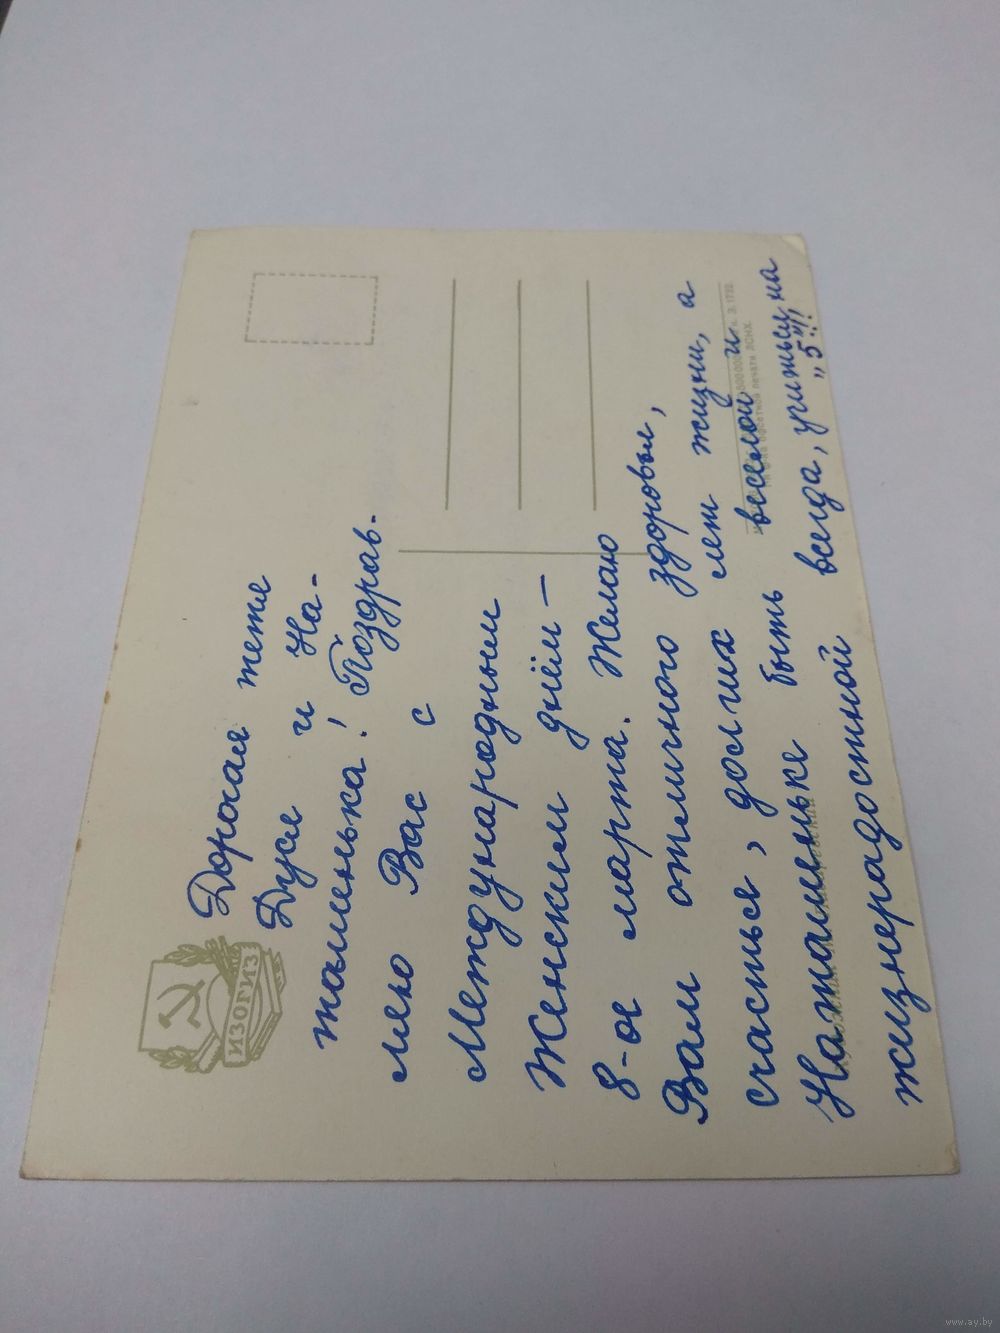 ИЗОГИЗ
Дорогая тетя
Дуся и На-
ташенька! Поздрав-
ляю Вас с
Международным
Женским днём –
8-ое марта. Желаю
Вам отличного здоровья,
счастья, долгих лет жизни, а
Наташеньке быть весёлой и
жизнерадостной всегда, учиться на
„5"!!!
З. 1722.
офсетной печати ЛСНХ.
www.ay.by